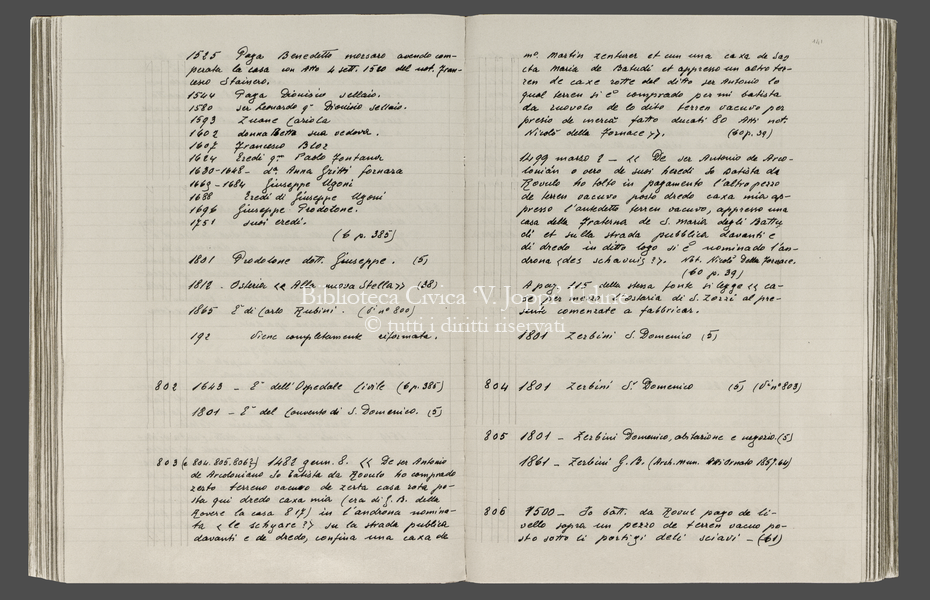 1525 Paga Benedetto marsaro avendo com-
perata la casa con Atto 4 sett. 1520 del not. Fran-
cesco Stainero.
1544 Paga Dionisio sellaio.
1580 ser Leonardo qm Dionisio sellaio.
1593 Zuane Cariola
1602 donna Betta sua vedova.
1607 Francesco Bloz
1624 Eredi qm Paolo Fontaner
1630-1648 - da. Anna Gritti fornara
1669 - 1684 Giuseppe Ugoni
1688 Eredi di Giuseppe Ugoni
1696 Giuseppe Prodolone.
1751 suoi eredi.
(6 p. 385)
1801 Prodolone dott. Giuseppe. (5)
1812 - Osteria << Alla nuova Stella >> (38)
1865 E' di Carlo Rubini. (Vi n° 800)
192 viene completamente riformata.
802 1643 - E' dell'Ospedale Civile (6 p. 385)
1801 - E' del Convento di S. Domenico. (5)
803 (e 804. 805. 806?) 1482 genn. 8. << De ser Antonio
de Arcoloniano Jo batista da Rovulo ho comprado
zerto terreno vacuvo de zerta casa rota po-
sta qui dredo caxa mia (era di G. B. della
Rovere la casa 817) in l'androna nomina-
ta < le schyare ?> su la strada publica
davanti e de dredo, confina una caxa de
mo. Martin zenturer et cun una caxa de San
cta Maria de Batudi et appresso un altro ter-
ren de caxe rotte del ditto ser Antonio lo
qual terren si è comprado per mi batista
da ruovolo de lo dito terren vacuvo per
presio de mercà fatto ducati 80 Atti not.
Nicolò della Fornace >>. (60 p. 39)
1499 marzo 2 - << De ser Antonio de Arco-
lonian o vero de suoi heredi Jo batista da
Rovulo ho tolto in pagamento l'altro pezzo
de terren vacuvo posto dredo caxa mia ap-
presso l'antedetto terren vacuvo, appresso una
casa della Fraterna de S. Maria degli Battu
di et sulla strada pubblica davanti e
di dredo in ditto logo si è nominado l'an-
drona <des schavuis ?>. Not. Nicolò Della Fornace.
(60 p. 39)
A pag. 115 della stessa fonte si legge << ca-
se per mezo l'ostaria di S. Zorzi al pre-
sente comenzate a fabbricar.
1801 Zerbini S. Domenico (5)
804 1801 Zerbini Sr Domenico (5) (Vi n° 803)
805 1801 - Zerbini Domenico, abitazione e negozio. (5)
1861 - Zerbini G. B. (Arch. mun. Atti Ornato 1857-64)
806 1500 - Jo batt. da Rovul pago de li-
vello sopra un pezzo de terren vacuo po-
sto sotto li portigi deli sciavi - (61)
Biblioteca Civica 'V. Joppi' Udine
© tutti i diritti riservati